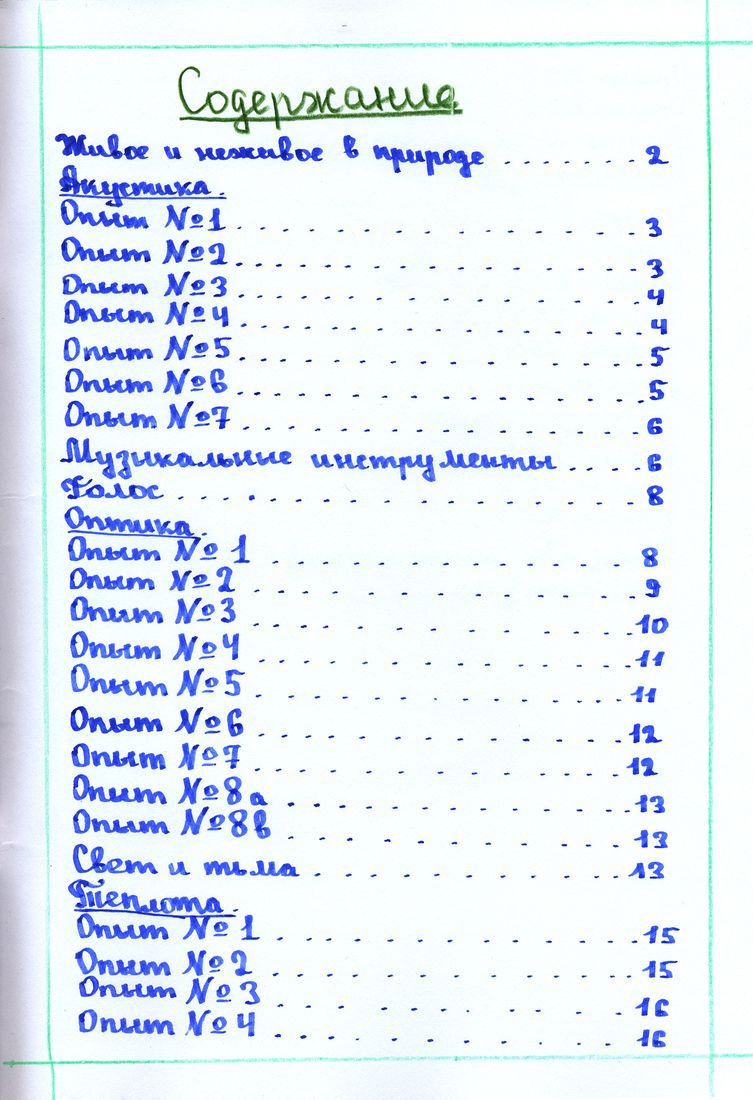 Содержание.
Живое и неживое в природе ....... 2
Акустика.
Опыт №1 ................ 3
Опыт №2 ................ 3
Опыт №3 ................ 4
Опыт №4 ................ 4
Опыт №5 ................ 5
Опыт №6 ................ 5
Опыт №7 ................ 6
Музыкальные инструменты .... 6
Голос ................ 8
Оптика.
Опыт №1 ............. 8
Опыт №2 ............. 9
Опыт №3 ............. 10
Опыт №4 ............. 11
Опыт №5 ............. 11
Опыт №6 ............. 12
Опыт №7 ............. 12
Опыт №8а ............ 13
Опыт №8в ............ 13
Свет и тьма ........... 13
Теплота.
Опыт №1 ............. 15
Опыт №2 ............. 15
Опыт №3 ............. 16
Опыт №4 ............. 16